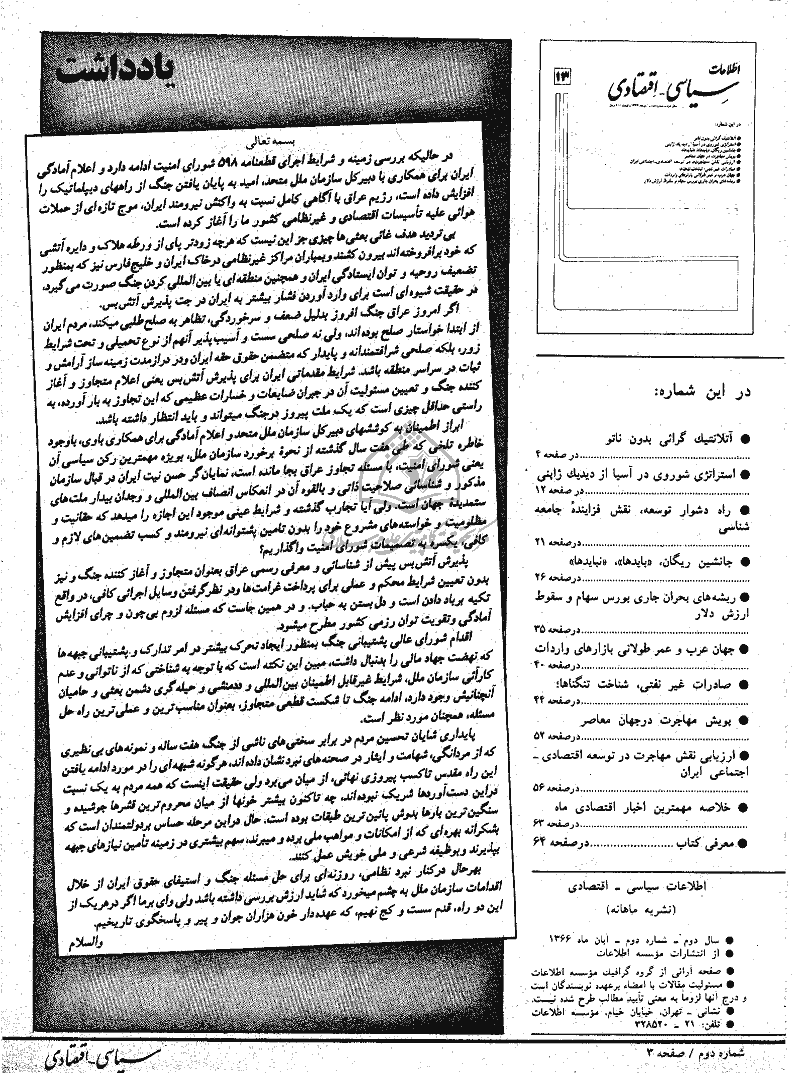 یادداشت
بسمه تعالی
در حالیکه بررسی زمینه و شرایط اجرای قطعنامه ۵۹۸ شورای امنیت ادامه دارد و اعلام آمادگی
ایران برای همکاری با دبیرکل سازمان ملل متحد، امید به پایان یافتن جنگ از راههای دیپلماتیک را
افزایش داده است، رژیم عراق با آگاهی کامل نسبت به واکنش نیرومند ایران، موج تازه‌ای از حملات
هوائی علیه تأسیسات اقتصادی و غیرنظامی کشور ما را آغاز کرده است.
بی‌تردید هدف غائی بعثی‌ها چیزی جز این نیست که هرچه زودتر پای از ورطه هلاک و دایره آتشی
که خود برافروخته‌اند بیرون کشند و بمباران مراکز غیرنظامی درخاک ایران و خلیج‌فارس نیز که بمنظور
تضعیف روحیه و توان ایستادگی ایران و همچنین منطقه‌ای یا بین‌المللی کردن جنگ صورت می‌گیرد،
در حقیقت شیوه‌ای است برای وارد آوردن فشار بیشتر به ایران در جت پذیرش آتش‌بس.
اگر امروز عراق جنگ افروز بدلیل ضعف و سرخوردگی، تظاهر به صلح‌طلبی میکند، مردم ایران
از ابتدا خواستار صلح بوده‌اند، ولی نه صلحی سست و آسیب‌پذیر آنهم از نوع تحمیلی و تحت شرایط
زور، بلکه صلحی شرافتمندانه و پایدار که متضمن حقوق حقه ایران ودر درازمدت زمینه‌ساز آرامش و
ثبات در سراسر منطقه باشد. شرایط مقدماتی ایران برای پذیرش آتش‌بس یعنی اعلام متجاوز و آغاز
کننده جنگ و تعیین مسئولیت آن در جبران ضایعات و خسارات عظیمی که این تجاوز به بار آورده، به
راستی حداقل چیزی است که یک ملت پیروز درجنگ میتواند و باید انتظار داشته باشد.
ابراز اطمینان به کوششهای دبیرکل سازمان ملل متحد و اعلام آمادگی برای همکاری باوی، باوجود
خاطره تلخی که طی هفت سال گذشته از نحوهٔ برخورد سازمان ملل، بویژه مهمترین رکن سیاسی آن
یعنی شورای امنیت، با مسئله تجاوز عراق بجا مانده است، نمایان‌گر حسن نیت ایران در قبال سازمان
مذکور و شناسائی صلاحیت ذاتی و بالقوه آن در انعکاس انصاف بین‌المللی و وجدان بیدار ملت‌های
ستمدیده جهان است. ولی آیا تجارب گذشته و شرایط عینی موجود این اجازه را میدهد که حقانیت و
مظلومیت و خواسته‌های مشروع خود را بدون تامین پشتوانه‌ای نیرومند و کسب تضمین‌های لازم و
کافی، یکسره به تصمیمات شورای امنیت واگذاریم؟
پذیرش آتش‌بس پیش از شناسائی و معرفی رسمی عراق بعنوان متجاوز و آغاز کننده جنگ و نیز
بدون تعیین شرایط محکم و عملی برای پرداخت غرامت‌ها ودر نظرگرفتن وسایل اجرائی کافی، در واقع
تکیه برباد دادن است و دل بستن به حباب. و در همین جاست که مسئله لزوم بی‌چون و چرای افزایش
آمادگی وتقویت توان رزمی کشور مطرح میشود.
اقدام شورای عالی پشتیبانی جنگ بمنظور ایجاد تحرک بیشتر در امر تدارک و پشتیبانی جبهه‌ها
که نهضت جهاد مالی را بدنبال داشت، مبین این نکته است که با توجه به شناختی که از ناتوانی و عدم
کارآئی سازمان ملل، شرایط غیرقابل اطمینان بین‌المللی و ددمنشی و حیله‌گری دشمن بعثی و حامیان
آنچنانیش وجود دارد، ادامه جنگ تا شکست قطعی متجاوز، بعنوان مناسب‌ترین و عملی‌ترین راه حل
مسئله، همچنان مورد نظر است.
پایداری شایان تحسین مردم در برابر سختی‌های ناشی از جنگ هفت ساله و نمونه‌های بی‌نظیری
که از مردانگی، شهامت و ایثار در صحنه‌های نبرد نشان داده‌اند، هرگونه شبهه‌ای را در مورد ادامه یافتن
این راه مقدس تاکسب پیروزی نهائی، از میان می‌برد ولی حقیقت اینست که همه مردم به یک نسبت
دراین دست‌آوردها شریک نبوده‌اند، چه تاکنون بیشتر خونها از میان محروم‌ترین قشرها جوشیده و
سنگین‌ترین بارها بدوش پائین‌ترین طبقات بوده است. حال دراین مرحله حساس بردولتمندان است که
بشکرانه بهره‌ای که از امکانات و مواهب ملی برده و میبرند، سهم بیشتری در زمینه تأمین نیازهای جبهه
بپذیرند وبوظیفه شرعی و ملی خویش عمل کنند.
بهرحال درکنار نبرد نظامی، روزنه‌ای برای حل مسئله جنگ و استیفای حقوق ایران از خلال
اقدامات سازمان ملل به چشم میخورد که شاید ارزش بررسی داشته باشد ولی وای برما اگر درهریک از
این دو راه، قدم سست و کج نهیم، که عهده‌دار خون هزاران جوان و پیر و پاسخگوی تاریخیم.
والسلام
اطلاعات
سیاسی-اقتصادی
۱۳
در این شماره:
در این شماره:
● آتلانتیك گرائی بدون ناتو
در صفحه ۴
● استراتژی شوروی در آسیا از دیدیك ژاپنی
در صفحه ۱۲
● راه دشوار توسعه، نقش فزایندهٔ جامعه
شناسی
درصفحه ۲۱
● جانشین ریگان، «بایدها»، «نبایدها»
درصفحه ۲۶
● ریشه‌های بحران جاری بورس سهام و سقوط
ارزش دلار
درصفحه ۳۵
● جهان عرب و عمر طولانی بازارهای واردات
درصفحه ۴۰
● صادرات غیر نفتی، شناخت تنگناها:
درصفحه ۴۴
● پویش مهاجرت درجهان معاصر
درصفحه ۵۲
● ارزیابی نقش مهاجرت در توسعه اقتصادی ـ
اجتماعی ایران
درصفحه ۵۶
● خلاصه مهمترین اخبار اقتصادی ماه
درصفحه ۶۳
● معرفی کتاب ........ درصفحه ۶۴
اطلاعات سیاسی ـ اقتصادی
(نشریه ماهانه)
● سال دوم ـ شماره دوم ـ آبان ماه ۱۳۶۶
● از انتشارات مؤسسه اطلاعات
● صفحه آرائی از گروه گرافیك مؤسسه اطلاعات
● مسئولیت مقالات با امضاء برعهده نویسندگان است
و درج آنها لزوما به معنی تأیید مطالب طرح شده نیست.
● نشانی ـ تهران، خیابان خیام، مؤسسه اطلاعات
● تلفن: ۲۱ ـ ۳۲۸۵۲۰
سیاسی-اقتصادی
شماره دوم / صفحه ۳